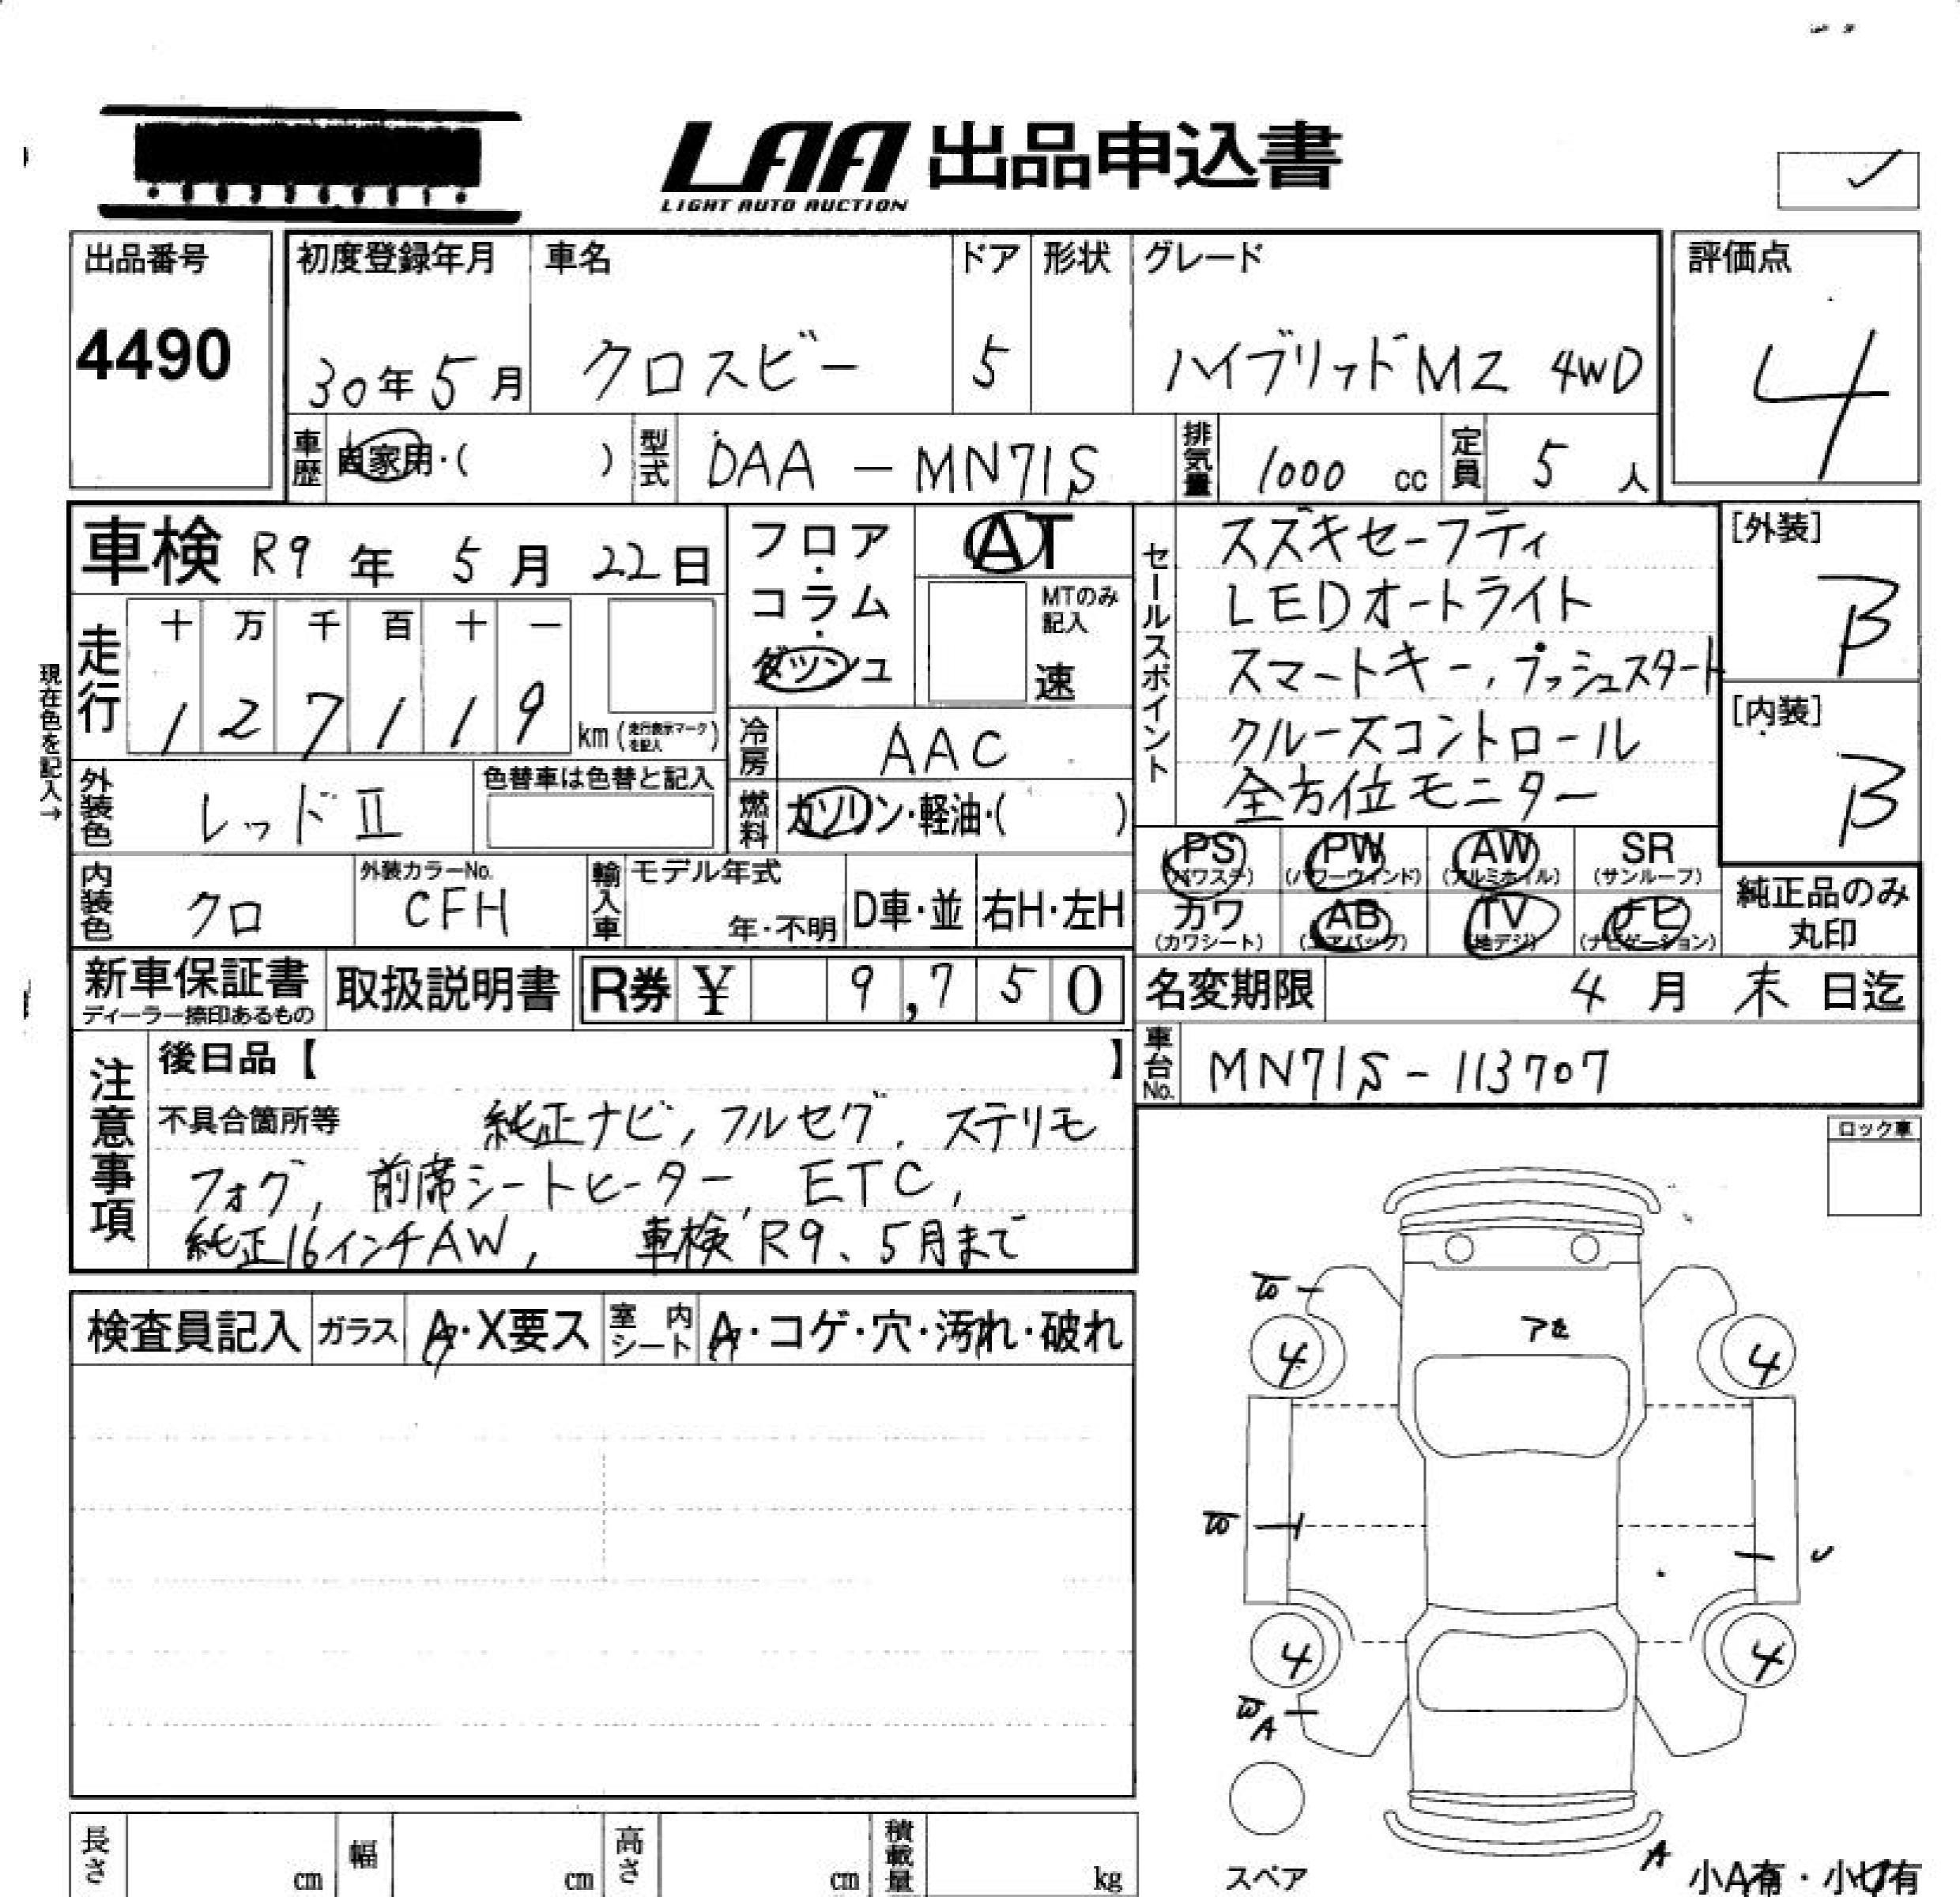 LAA 出品申込書
LIGHT AUTO AUCTION
出品番号
4490
初度登録年月
30年5月
車名
クロスビー
ドア
5
形状
グレード
ハイブリッドMZ 4WD
評価点
4
車歴
自家用・( )
型式
DAA-MN71S
排気量
1000 cc
定員
5 人
車検 R9年 5月 22日
フロア・コラム・ダッシュ
AT
MTのみ記入
速
セールスポイント
スズキセーフティ
LEDオートライト
スマートキー、プッシュスタート
クルーズコントロール
全方位モニター
[外装]
B
[内装]
B
現在色を記入→
走行
十 万 千 百 十 一
1 2 7 1 1 9
km(走行表示マークを記入)
冷房
AAC
外装色
レッドⅡ
色替車は色替と記入
燃料
ガソリン・軽油・( )
PS (パワステ)
PW (パワーウィンド)
AW (アルミホイル)
SR (サンルーフ)
内装色
クロ
外装カラーNo.
CFH
輸入車
モデル年式
年・不明
D車・並
右H・左H
カワ (カワシート)
AB (エアバッグ)
TV (地デジ)
ナビ (ナビゲーション)
純正品のみ丸印
新車保証書
ディーラー捺印あるもの
取扱説明書
R券 ¥ 9,750
名変期限
4月 末日迄
車台No.
MN71S-113707
注意事項
後日品【 】
不具合箇所等
純正ナビ, フルセグ, ステリモ
フォグ, 前席シートヒーター, ETC,
純正16インチAW, 車検R9、5月まで
ロック車
検査員記入
ガラス
A・X要ス
室内シート
A・コゲ・穴・汚れ・破れ
アモ
4
4
4
4
A
A
スペア
小A有・小U有
長さ
cm
幅
cm
高さ
cm
積載量
kg